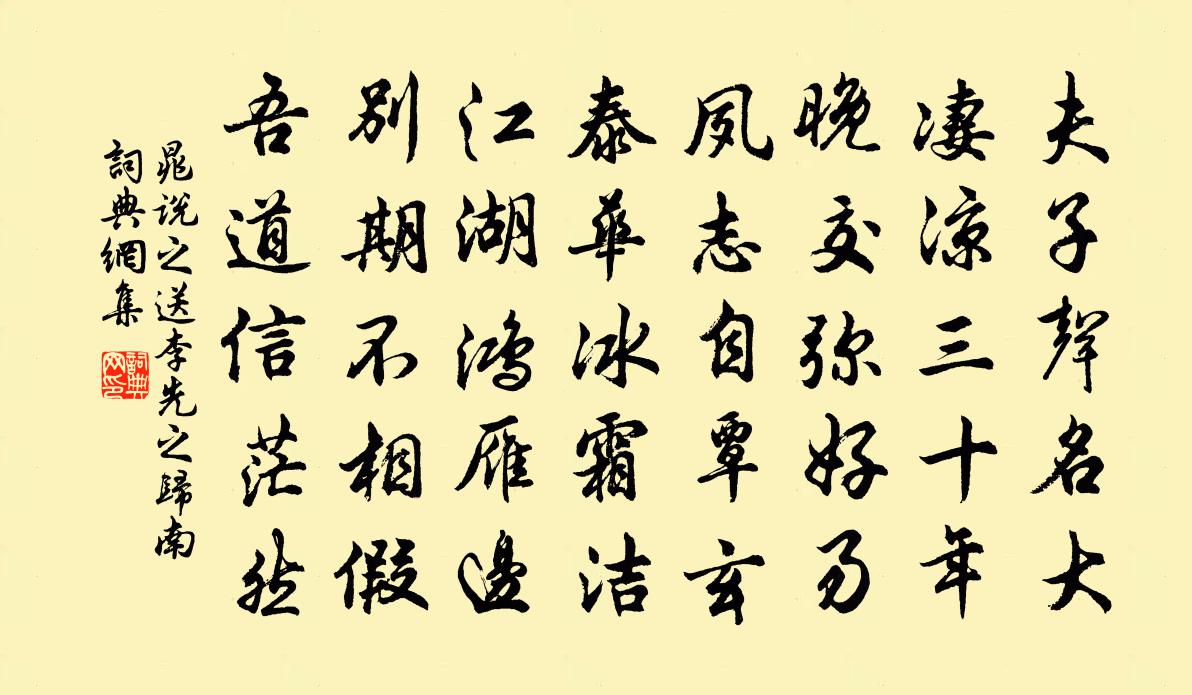 夫子聲名大
凄涼三十年
晚交弥好易
夙志自覃玄
泰華冰霜洁
江湖鴻雁邊
別期不相假
吾道信茫然
晁說之送李先之歸南
詞典網集
詞典网印